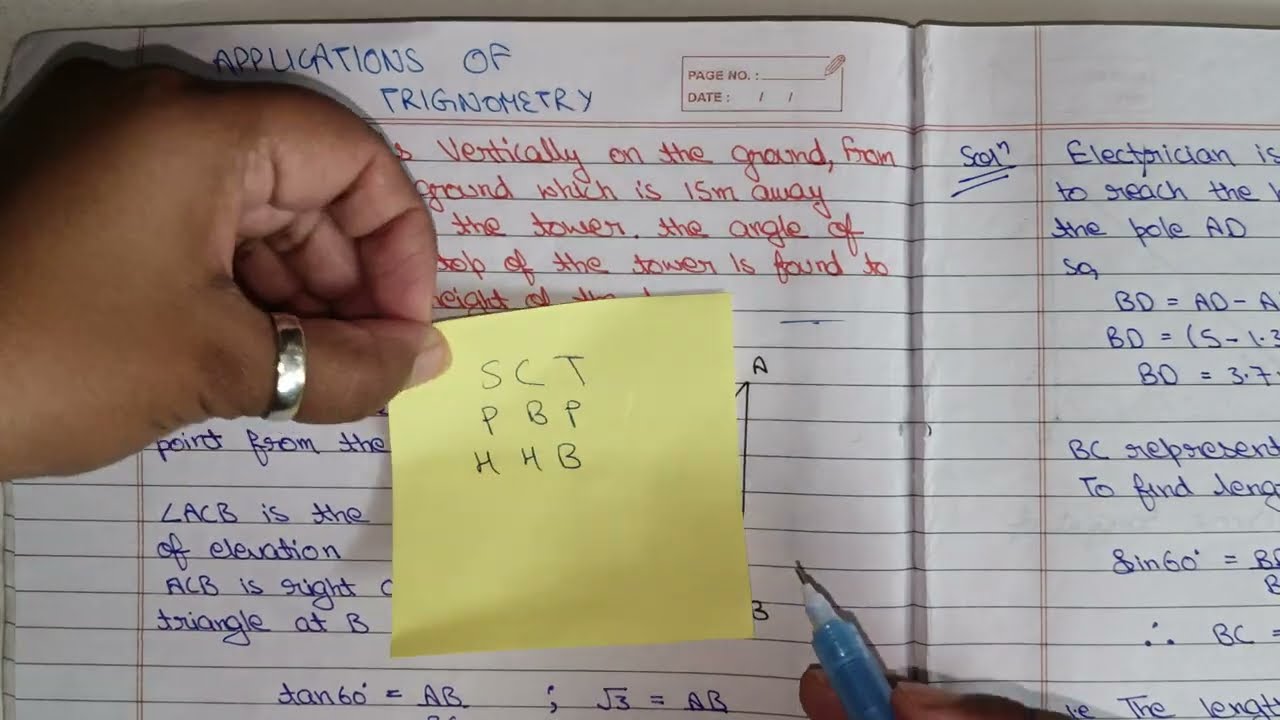 APPLICATIONS OF
TRIGNOMETRY
PAGE NO. :
DATE : / /
Vertically on the ground, from
ground which is 15m away
the tower. the angle of
top of the tower is found to
height of the
S C T
P B P
H H B
A
point from the
∠ACB is the
of elevation
ACB is right
triangle at B
B
tan60° = AB ; √3 = AB
Soln Electrician is
to reach the
the pole AD
so,
BD = AD - A
BD = (5 - 1.3
BD = 3.7
BC represent
To find leng
Sin60° = BD
B
∴ BC =
i.e The length